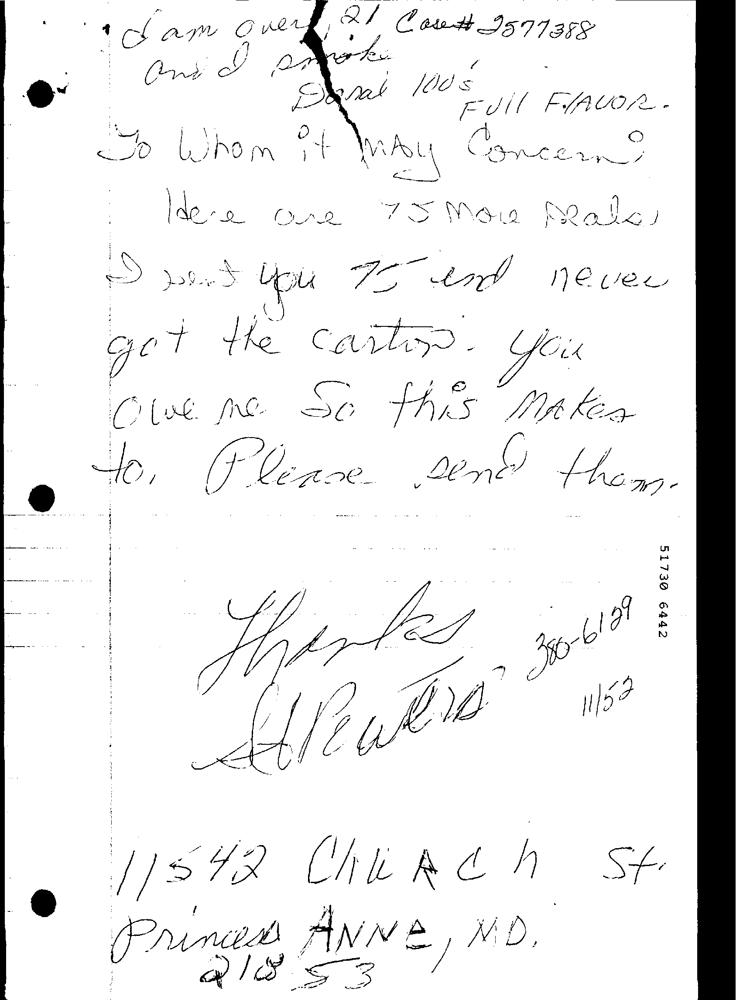 I am over 21 Case# 2577388
and I smoke
Doral 100's
Full Flavor.
To Whom it May Concern:
Here are 75 More seals,
I sent you 75 and never
got the carton. You
owe me So this Makes
to. Please send them.
Thanks
380-6129
11/52
51730 6442
11542 Church St.
Princess ANNE, MD.
21853